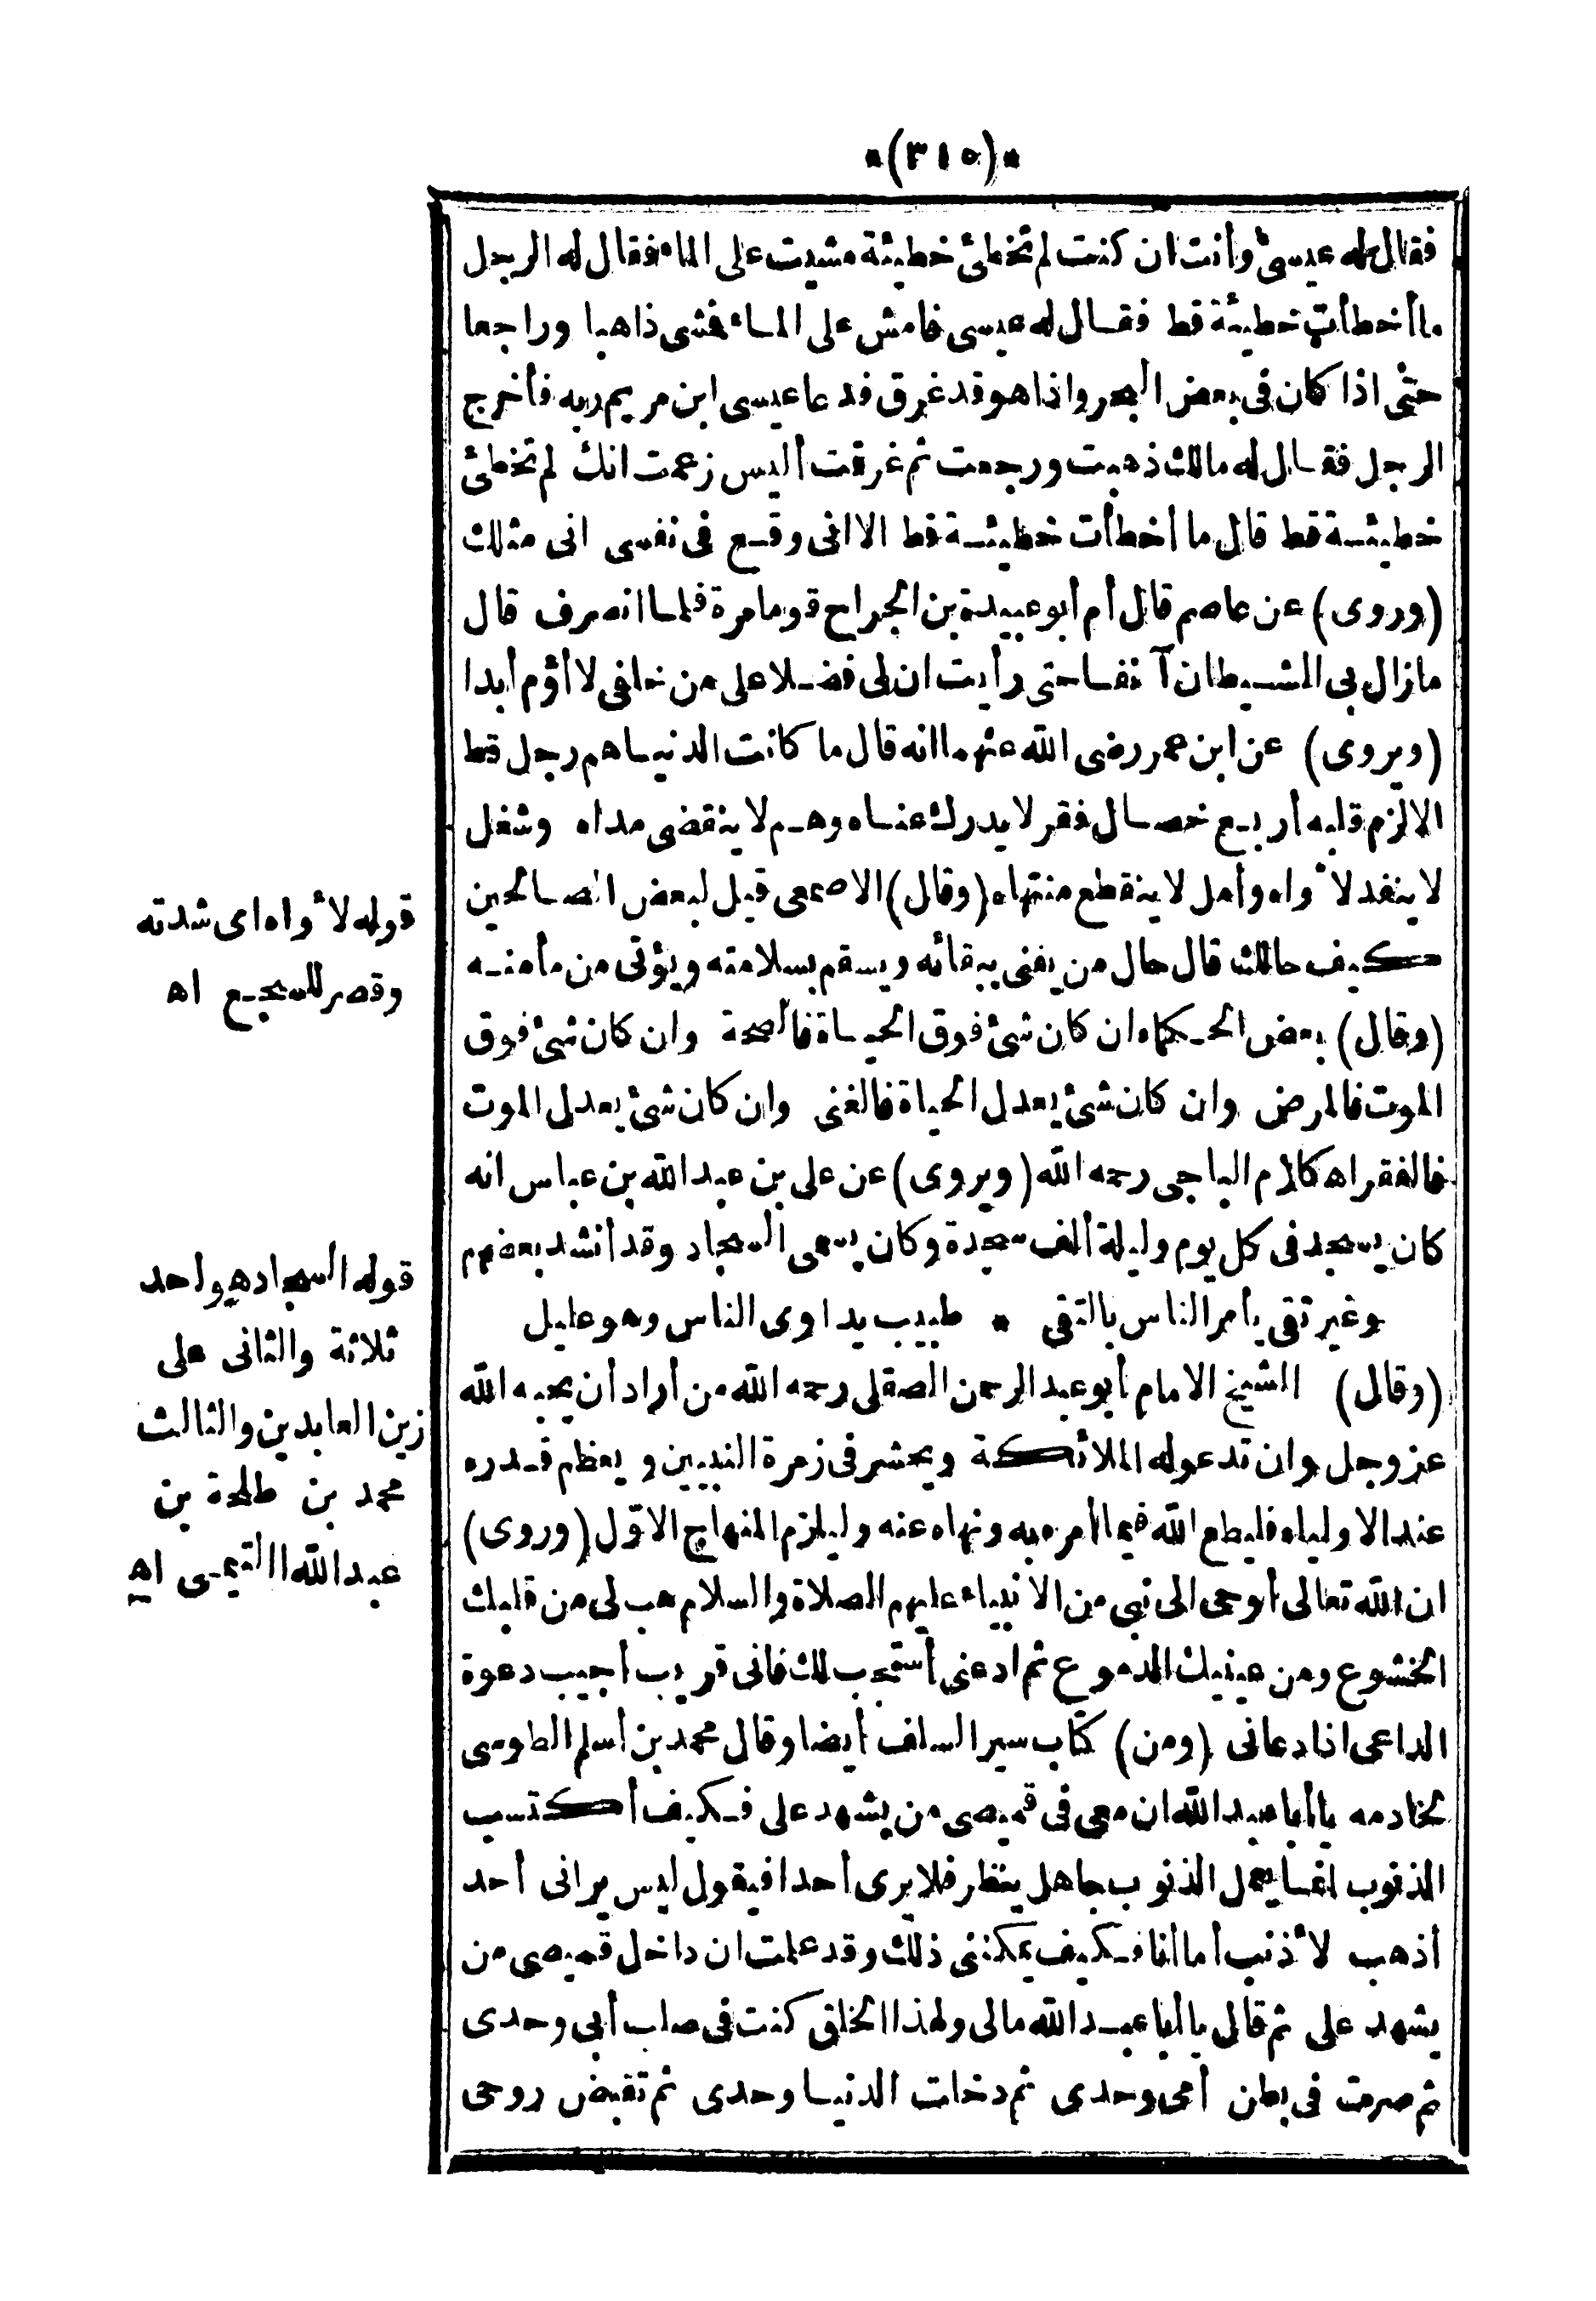 *(٣١٥)*
فقال له عيسى وأنت ان كنت لم تخطئ خطيئة مشيت على الماء فقال له الرجل
ما أخطأت خطيئة قط فقال له عيسى فامش على الماء فمشى ذاهبا وراجعا
حتى اذا كان فى بعض البحر واذا هو قد غرق فدعا عيسى ابن مريم ربه فأخرج
الرجل فقال له مالك ذهبت ورجعت ثم غرقت أليس زعمت انك لم تخطئ
خطيئة قط قال ما أخطأت خطيئة قط الا انى وقع فى نفسى انى مثلك
(وروى) عن عاصم قال أم أبو عبيدة بن الجراح قوما مرة فلما انصرف قال
ما زال بى الشيطان آنفا حتى رأيت ان لى فضلا على من خلفى لا أؤم أبدا
(ويروى) عن ابن عمر رضى الله عنهما انه قال ما كانت الدنيا هم رجل قط
الا لزم قلبه أربع خصال فقر لا يدرك غناه وهم لا ينقضى مداه وشغل
لا ينفد لأواه وأمل لا ينقطع منتهاه (وقال) الاصمعى قيل لبعض الصالحين
كيف حالك قال حال من يفنى ببقائه ويسقم بسلامته ويؤتى من مأمنه
(وقال) بعض الحكماء ان كان شئ فوق الحياة فالصحة وان كان شئ فوق
الموت فالمرض وان كان شئ يعدل الحياة فالغنى وان كان شئ يعدل الموت
فالفقر اه كلام الباجى رحمه الله (ويروى) عن على بن عبد الله بن عباس انه
كان يسجد فى كل يوم وليلة ألف سجدة وكان يسمى السجاد وقد أنشد بعضهم
وغير تقى يأمر الناس بالتقى * طبيب يداوى الناس وهو عليل
(وقال) الشيخ الامام أبو عبد الرحمن الصقلى رحمه الله من أراد أن يحبه الله
عز وجل وان تدعو له الملائكة ويحشر فى زمرة النبيين ويعظم قدره
عند الاولياء فليطع الله فيما أمره به ونهاه عنه وليلزم المنهاج الاوّل (وروى)
ان الله تعالى أوحى الى نبى من الانبياء عليهم الصلاة والسلام هب لى من قلبك
الخشوع ومن عينيك الدموع ثم ادعنى أستجب لك فانى قريب أجيب دعوة
الداعى اذا دعانى (ومن) كتاب سير السلف أيضا وقال محمد بن أسلم الطوسى
لخادمه يا أبا عبد الله ان معى فى قميصى من يشهد على فكيف أكتسب
الذنوب انما يعمل الذنوب جاهل ينظر فلا يرى أحدا فيقول ليس يرانى أحد
أذهب لأذنب أما أنا فكيف يمكننى ذلك وقد علمت ان داخل قميصى من
يشهد على ثم قال يا أبا عبد الله مالى ولهذا الخلق كنت فى صلب أبى وحدى
ثم صرت فى بطن أمى وحدى ثم دخلت الدنيا وحدى ثم تقبض روحى
قوله لأواه اى شدته
وقصر للسجع اه
قوله السجاد هو أحد
ثلاثة والثانى على
زين العابدين والثالث
محمد بن طلحة بن
عبد الله التيمى اه